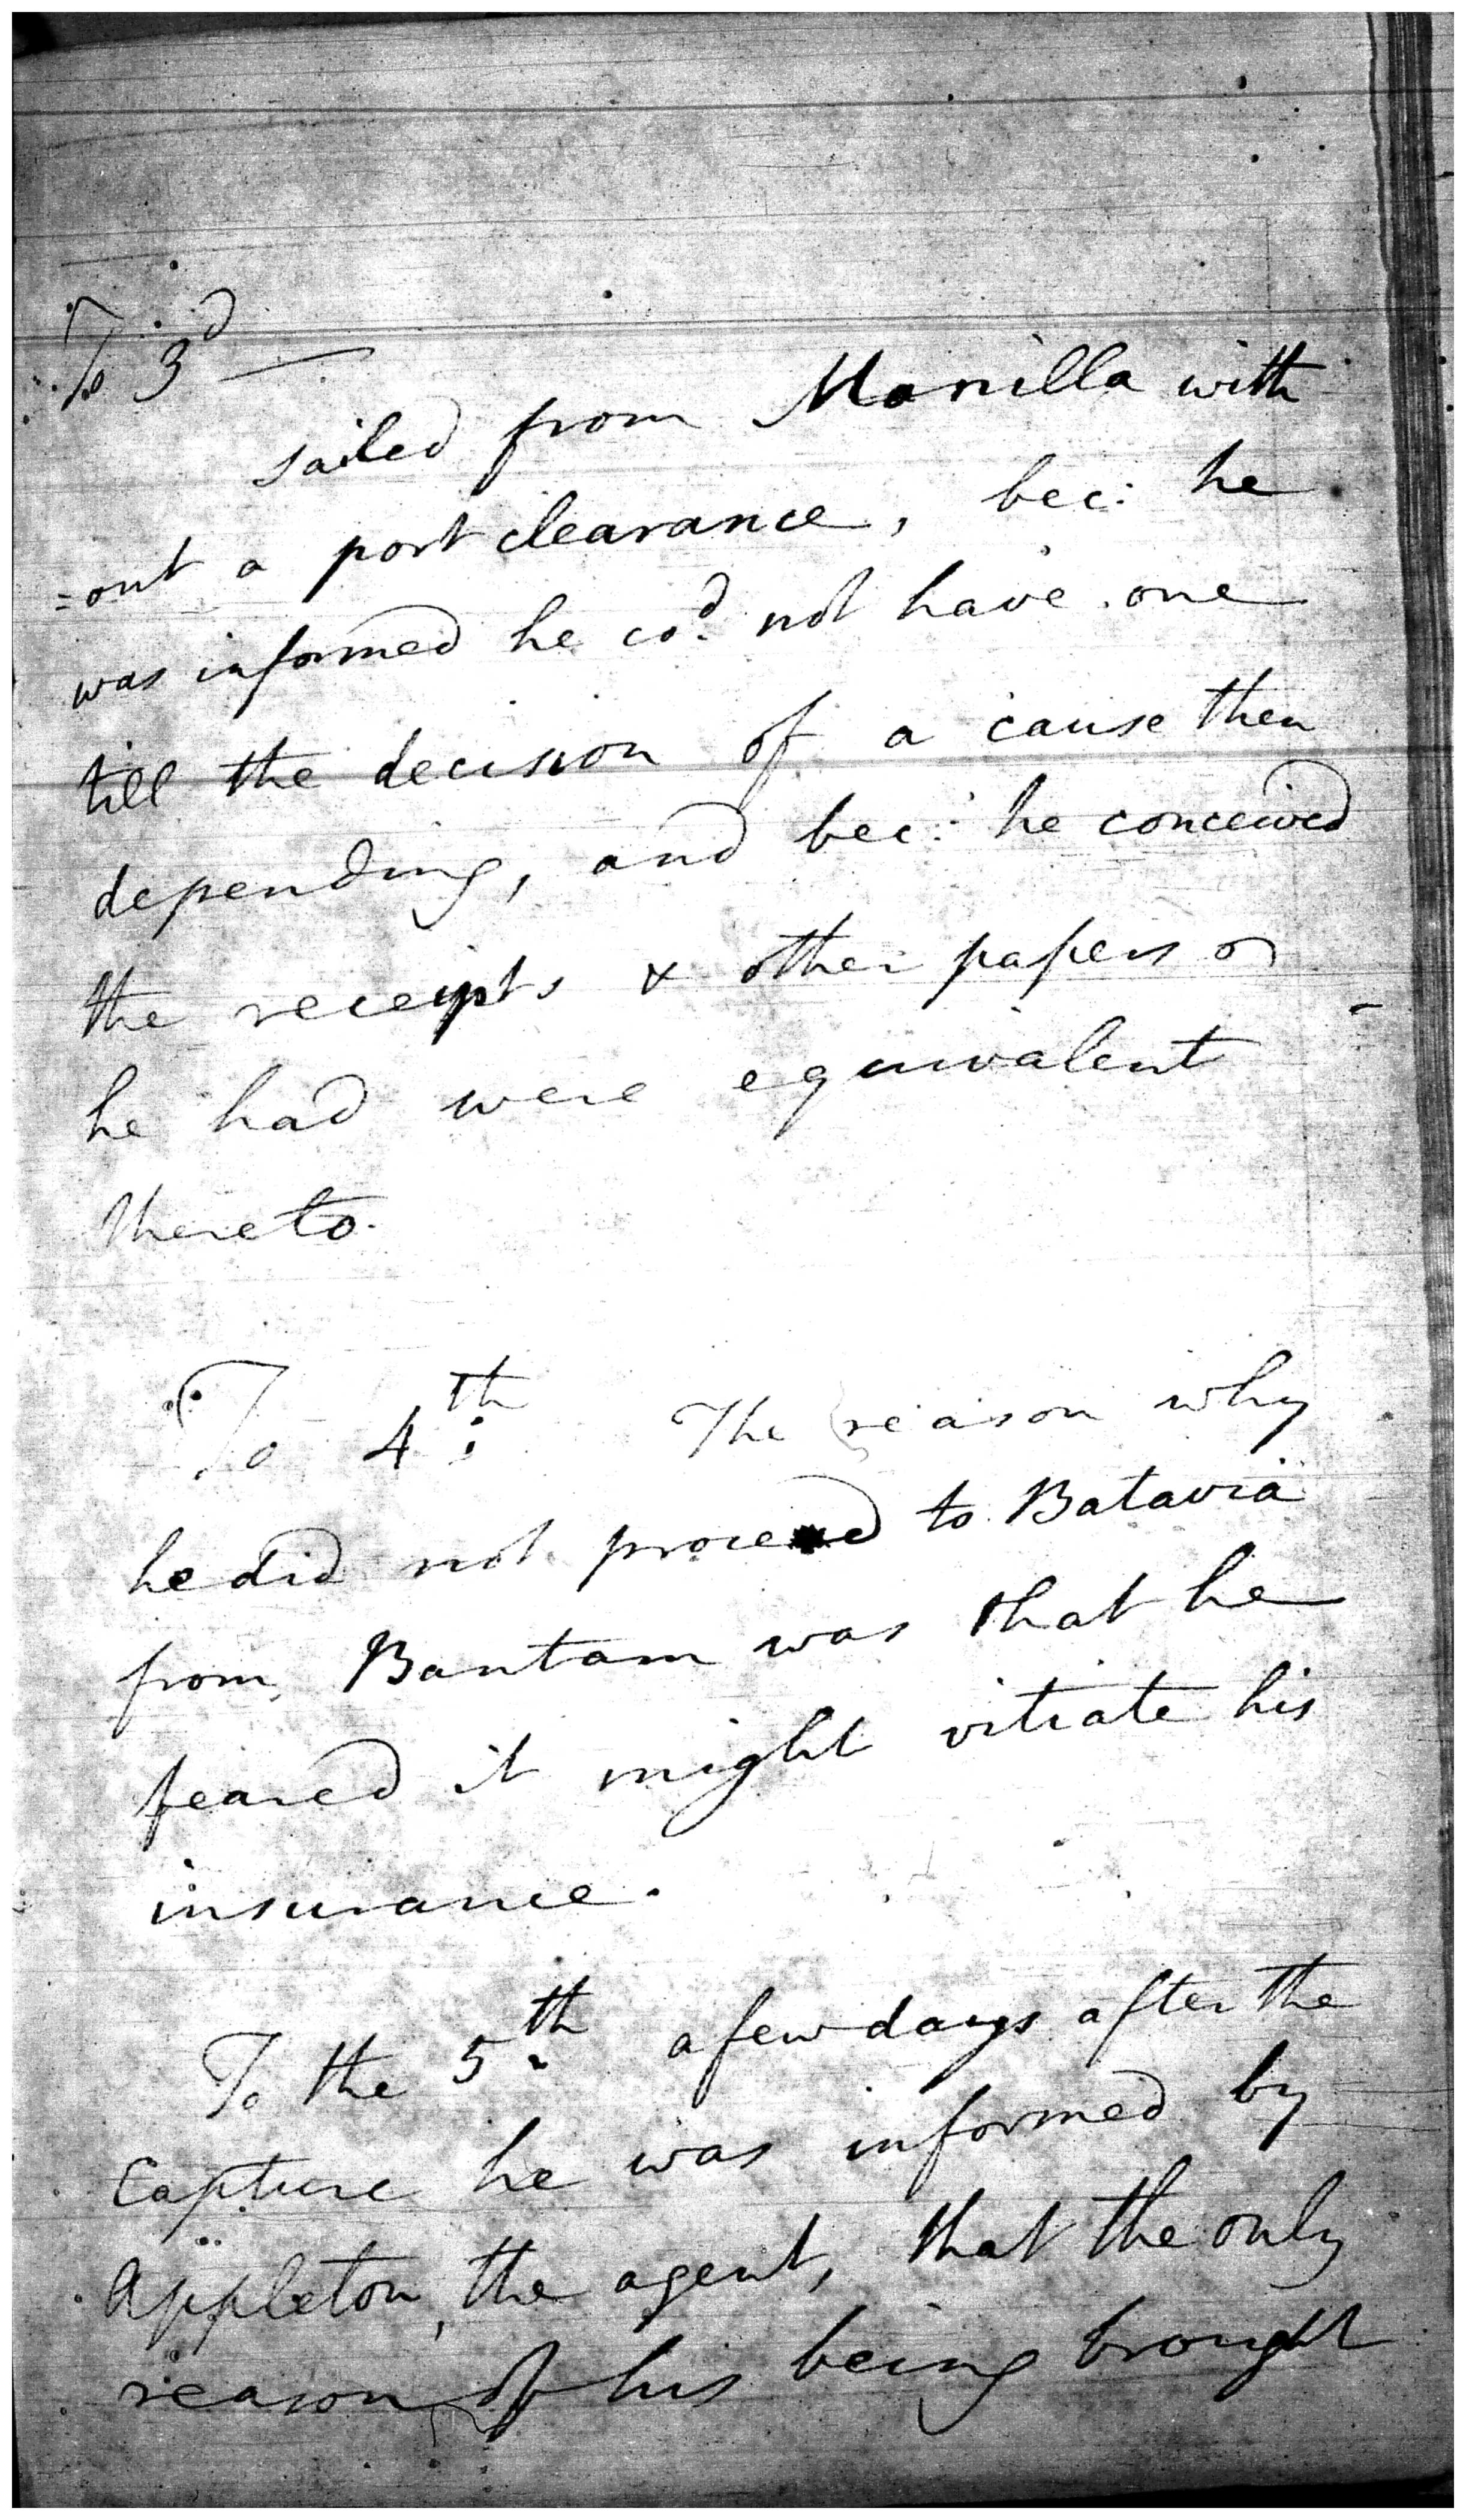 To 3d —
sailed from Manilla with
=out a port clearance, bec: he
was informed he cod. not have one
till the decision of a cause then
depending, and bec: he conceived
the receipts & other papers
he had were equivalent
thereto.
To 4th: The reason why
he did not proceed to Batavia
from Bantam was that he
feared it might vitiate his
insurance.
To the 5th. a few days after the
Capture he was informed by
Appleton, the agent, that the only
reason of his being brought